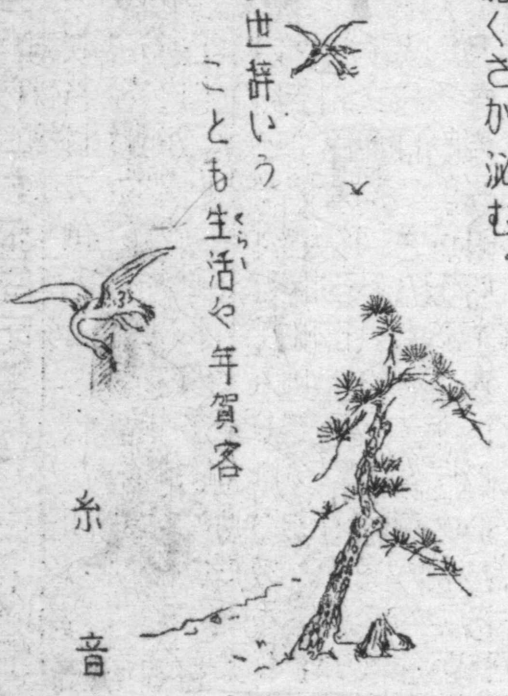 くさか泌む。
世辞いう
ことも生活や年賀客
くらい
糸音